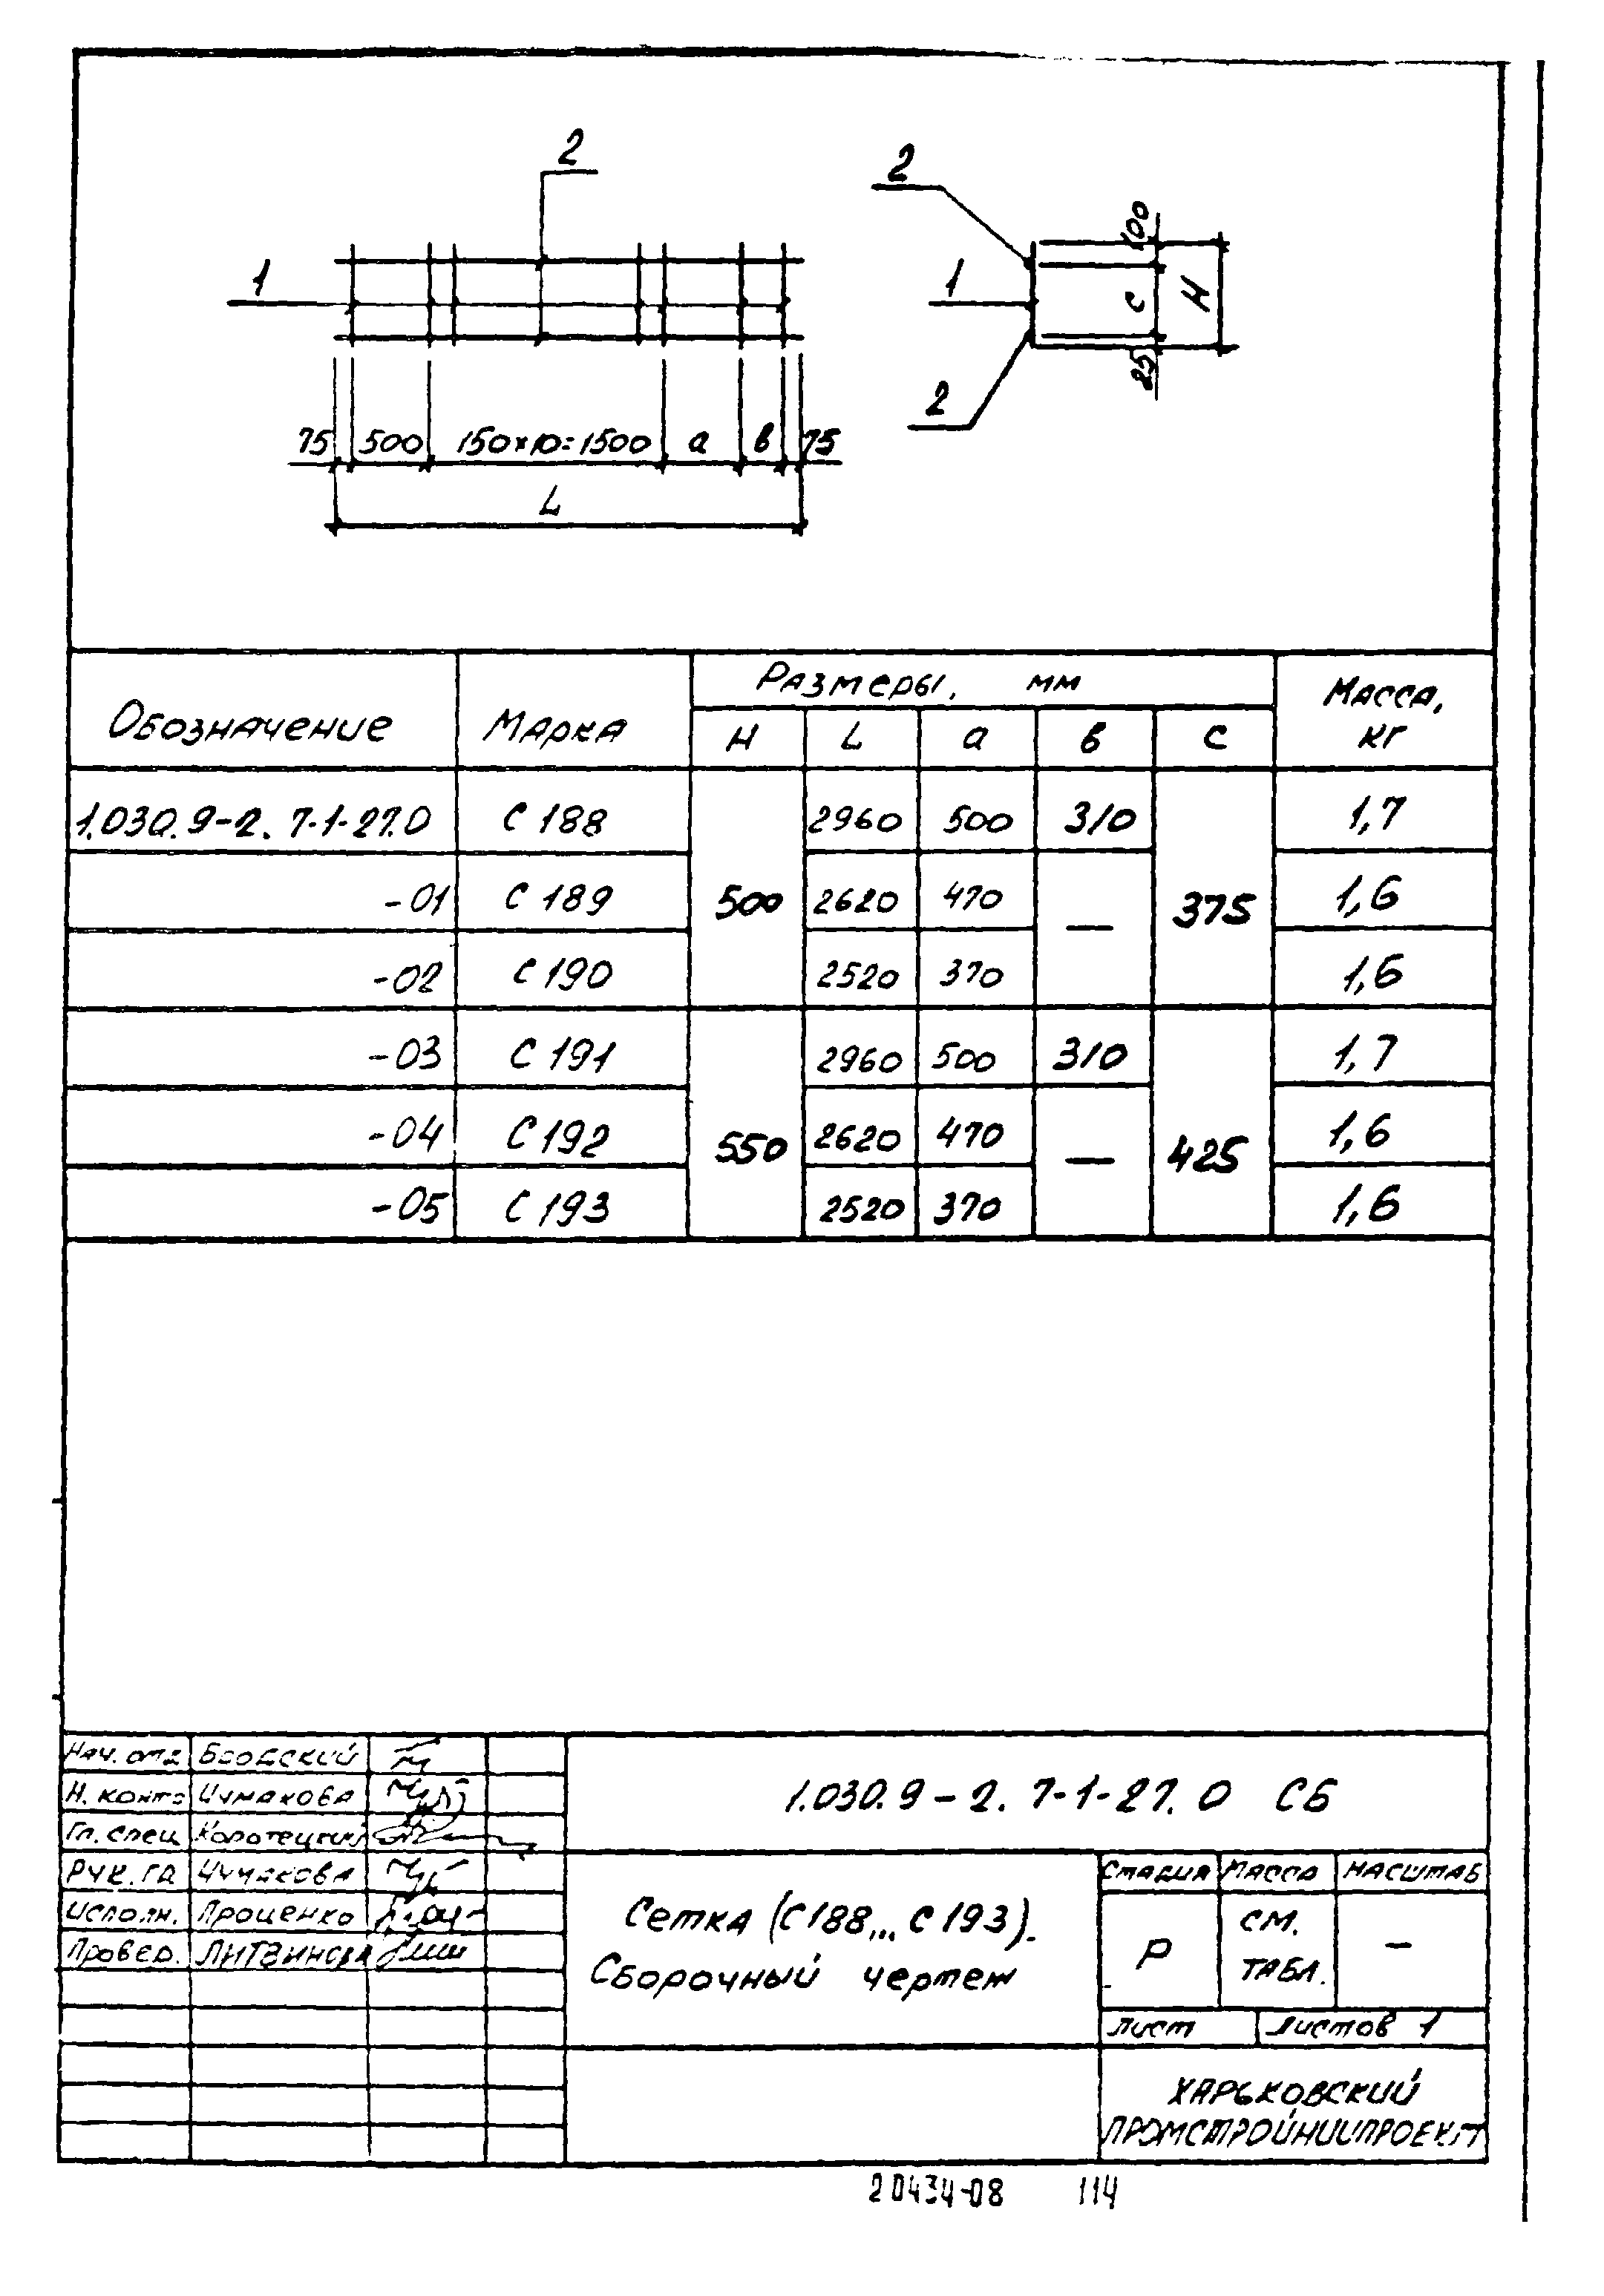 2
2
1
1
100
С
Н
25
2
75 500 150×10=1500 а в 75
L
Обозначение Марка Размеры, мм Масса, кг
Н L а в с
1.030.9-2. 7-1-27.0 С 188 500 2960 500 310 375 1,7
-01 С 189 2620 470 — 1,6
-02 С 190 2520 370 1,6
-03 С 191 550 2960 500 310 425 1,7
-04 С 192 2620 470 — 1,6
-05 С 193 2520 370 1,6
Нач. отд Бродский
Н. контр Чумакова
Гл. спец Коротецкий
Рук. гр Чумакова
Исполн. Проценко
Провер. Литвинова
1.030.9-2. 7-1-27.0 СБ
Сетка (С188... С193).
Сборочный чертеж
Стадия Масса Масштаб
Р см. табл. —
Лист Листов 1
Харьковский
Промстройниипроект
20434-08 114